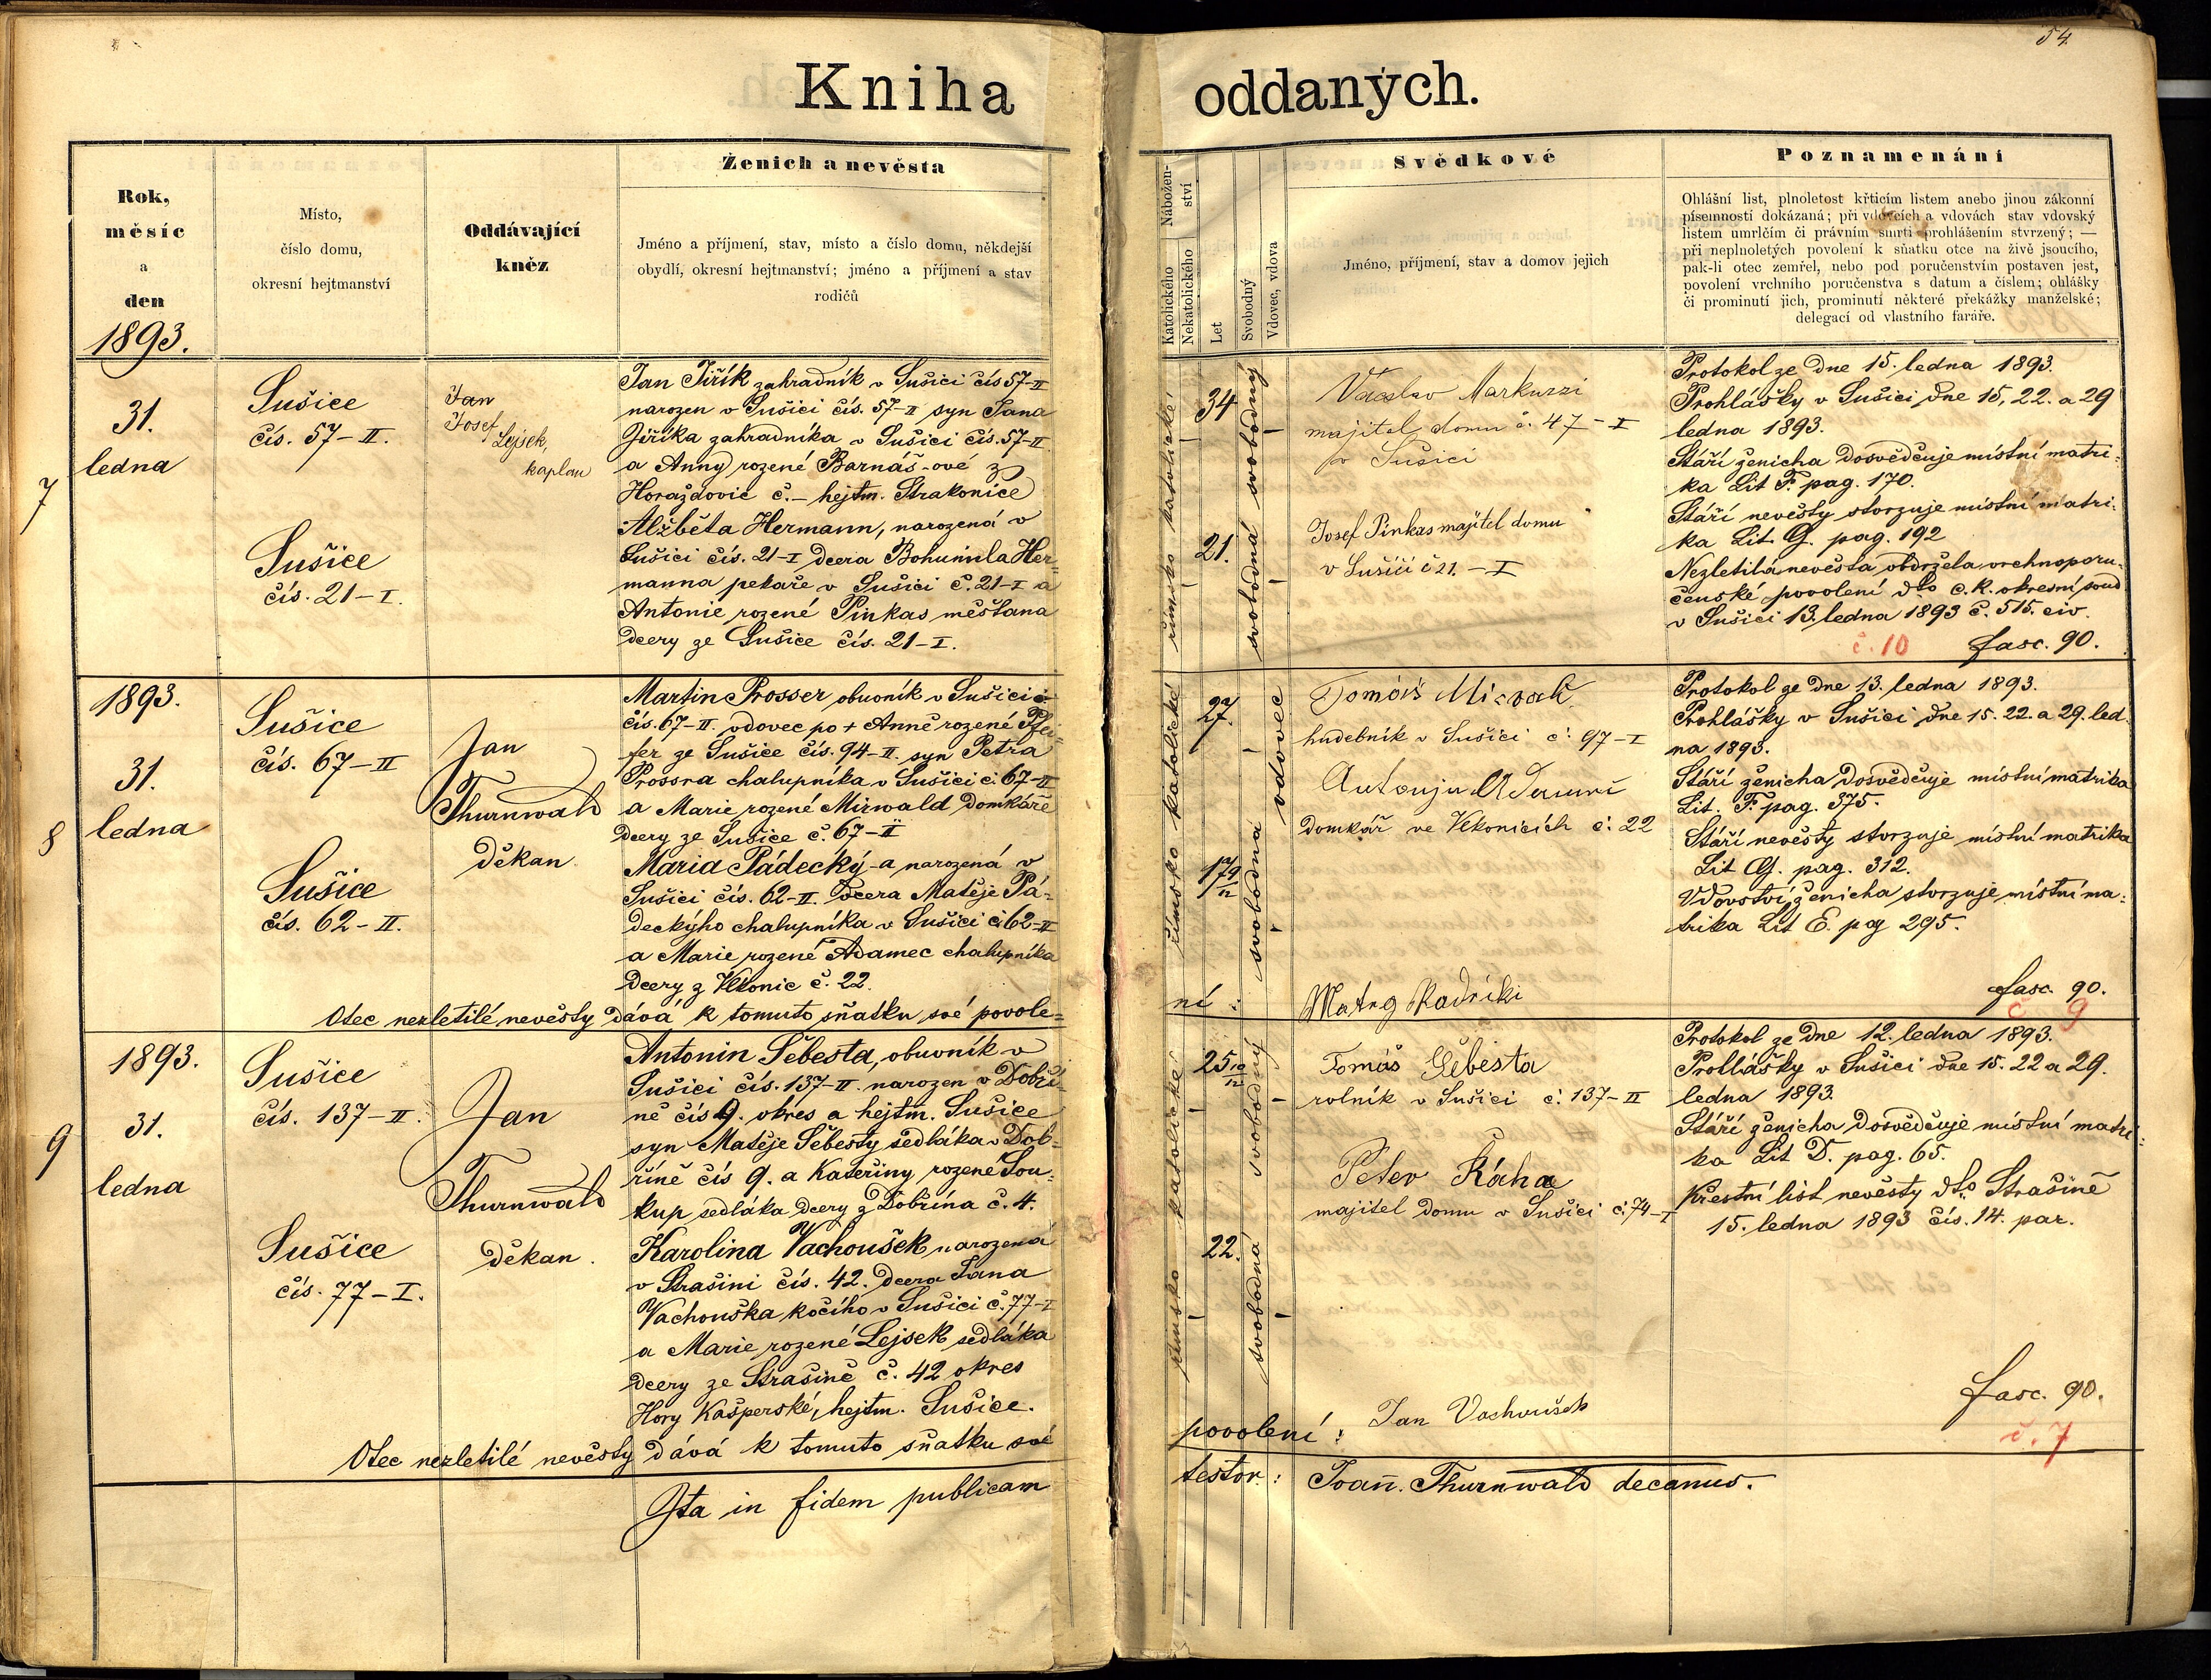 54.
Kniha oddaných.
Rok,
měsíc
a
den
1893.
Místo,
číslo domu,
okresní hejtmanství
Oddávající
kněz
Ženich a nevěsta
Jméno a příjmení, stav, místo a číslo domu, někdejší
obydlí, okresní hejtmanství; jméno a příjmení a stav
rodičů
Nábožen-
ství
Katolického
Nekatolického
Let
Svobodný
Vdovec, vdova
Svědkové
Jméno, příjmení, stav a domov jejich
Poznamenání
Ohlášní list, plnoletost křticím listem anebo jinou zákonní
písemností dokázaná; při vdovcích a vdovách stav vdovský
listem umrlčím či právním smrti prohlášením stvrzený; —
při neplnoletých povolení k sňatku otce na živě jsoucího,
pak-li otec zemřel, nebo pod poručenstvím postaven jest,
povolení vrchního poručenstva s datum a číslem; ohlášky
či prominutí jich, prominutí některé překážky manželské;
delegací od vlastního faráře.
7
31.
ledna
Sušice
čís. 57-II.
Sušice
čís. 21-I.
Jan
Josef
Lejsek,
kaplan
Jan Jiřík zahradník v Sušici čís 57-II
narozen v Sušici čís. 57-II syn Jana
Jiříka zahradníka v Sušici čís. 57-II
a Anny rozené Barnáš-ové z
Horažďovic č.- hejtm. Strakonice
Alžběta Hermann, narozená v
Sušici čís. 21-I dcera Bohumila Her-
manna pekaře v Sušici č. 21-I a
Antonie rozené Pinkas měšťana
dcery ze Sušice čís. 21-I.
římsko katolické
34
21.
svobodný
svobodná
Václav Markuzzi
majitel domu č. 47-I
v Sušici
Josef Pinkas majitel domu
v Sušici č 21.-I
Protokol ze dne 15. ledna 1893.
Prohlášky v Sušici dne 15, 22. a 29
ledna 1893.
Stáří ženicha dosvědčuje místní matri-
ka Lit F. pag. 170.
Stáří nevěsty stvrzuje místní matri-
ka Lit. G. pag. 192
Nezletilá nevěsta obdržela vrchnoporu-
čenské povolení dto c.k. okresní soud
v Sušici 13. ledna 1893 č. 515. civ.
č. 10 fasc. 90.
8
1893.
31.
ledna
Sušice
čís. 67-II
Sušice
čís. 62-II.
Jan
Thurnwald
děkan
Martin Prosser obuvník v Sušici
čís. 67-II. vdovec po + Anně rozené Pfei-
fer ze Sušice čís. 94-II. syn Petra
Prossra chalupníka v Sušici č. 67-II
a Marie rozené Mirwald domkáře
dcery ze Sušice č. 67-II
Maria Pádecký-a narozená v
Sušici čís. 62-II. dcera Matěje Pá-
deckýho chalupníka v Sušici č 62-II
a Marie rozené Adamec chalupníka
dcery z Vlkonic č. 22.
Otec nezletilé nevěsty dává k tomuto sňatku své povole-
ní:
římsko katolické
27.
17 9/12
vdovec
svobodná
Tomáš
hudebník v Sušici č. 97-I
domkář ve Vlkonicích č. 22
Protokol ze dne 13. ledna 1893.
Prohlášky v Sušici dne 15. 22. a 29. led-
na 1893.
Stáří ženicha dosvědčuje místní matrika
Lit. F. pag. 375.
Stáří nevěsty stvrzuje místní matrika
Lit G. pag. 312.
Vdovství ženicha stvrzuje místní ma-
trika Lit E. pag 295.
fasc. 90.
č 9
9
1893.
31.
ledna
Sušice
čís. 137-II.
Sušice
čís. 77-I.
Jan
Thurnwald
děkan.
Antonin Šebesta, obuvník v
Sušici čís. 137-II. narozen v Dobří-
ně čís 9. okres a hejtm. Sušice
syn Matěje Šebesty sedláka v Dob-
říně čís 9. a Kateřiny rozené Sou-
kup sedláka dcery z Dobřína č. 4.
Karolina Vachoušek narozená
v Strašíni čís. 42. dcera Jana
Vachouška kočího v Sušici č. 77-I
a Marie rozené Lejsek sedláka
dcery ze Strašíně č. 42 okres
Hory Kašperské, hejtm. Sušice.
Otec nezletilé nevěsty dává k tomuto sňatku své
povolení:
římsko katolické
25 10/12
22.
svobodný
svobodná
Tomáš Šebesta
rolník v Sušici č. 137-II
Peter Kácha
majitel domu v Sušici č. 74-I
Jan Vachoušek
Protokol ze dne 12. ledna 1893.
Prohlášky v Sušici dne 15. 22 a 29.
ledna 1893.
Stáří ženicha dosvědčuje místní matri-
ka Lit D. pag. 65.
Křestní list nevěsty dto Strašíně
15. ledna 1893 čís. 14. par.
fasc. 90.
č. 7
Ita in fidem publicam
testor: Joañ. Thurnwald decanus.